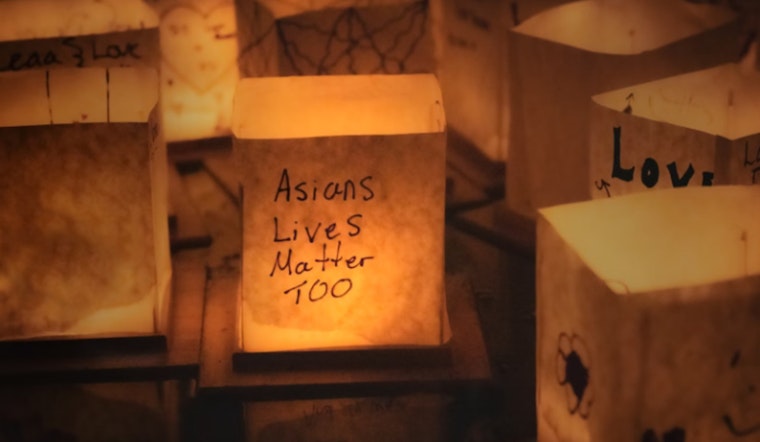 & Love
Asians
Lives
Matter
TOO
Love